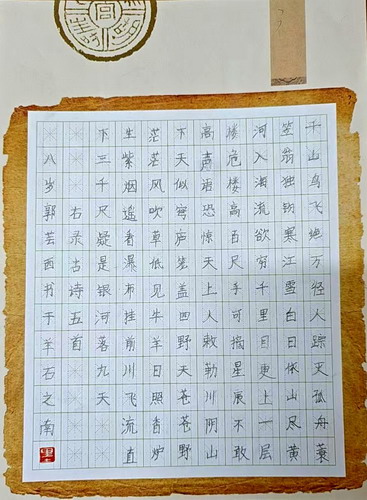 千山鸟飞绝万径人踪灭孤舟蓑
笠翁独钓寒江雪白日依山尽黄
河入海流欲穷千里目更上一层
楼危楼高百尺手可摘星辰不敢
高声语恐惊天上人敕勒川阴山
下天似穹庐笼盖四野天苍苍野
茫茫风吹草低见牛羊日照香炉
生紫烟遥看瀑布挂前川飞流直
下三千尺疑是银河落九天
右录古诗五首
八岁郭芸西书于羊石之南